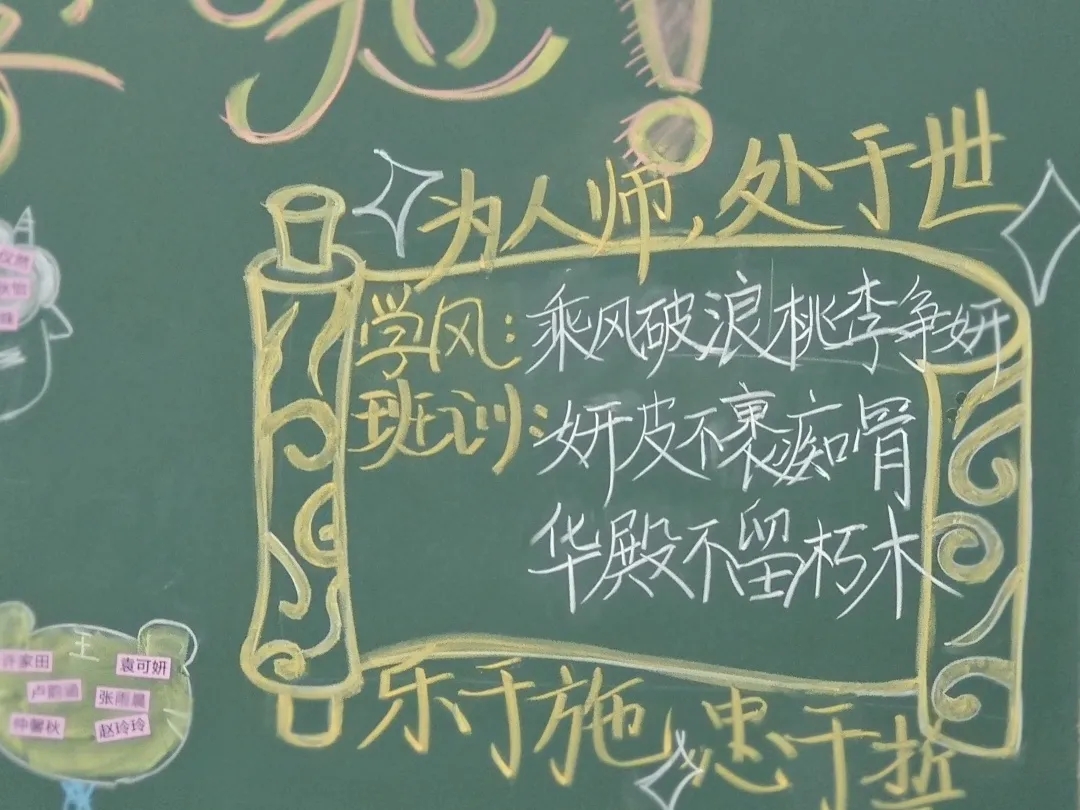 为人师,处于世
学风:乘风破浪桃李争妍
班训:妍皮不裹痴骨
华殿不留朽木
乐于施 忠于哲
王
许家田 袁可妍
卢韵涵 张雨晨
仲馨秋 赵玲玲